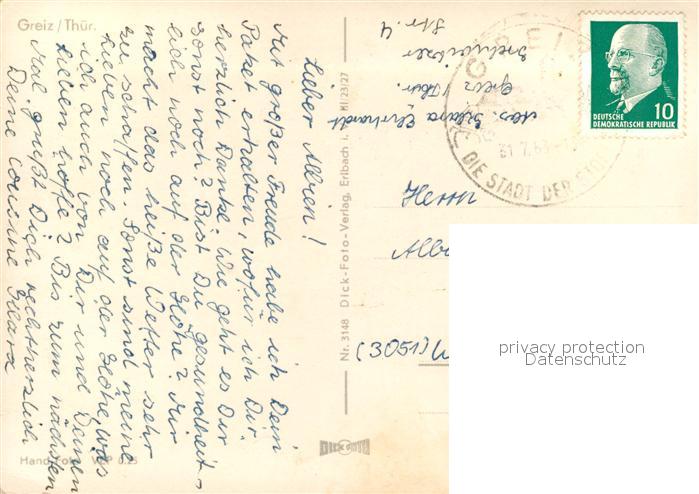 Greiz/Thür.
Lieber Albin!
Mit großer Freude habe ich Dein
Paket erhalten, wofür ich Dir
herzlich Danke. Wie geht es Dir
sonst noch? Bist Du gesundheit-
lich noch auf der Höhe? Mir
macht das heiße Wetter sehr
zu schaffen. Sonst sind meine
Lieben noch auf der Höhe, was
ich auch von Dir und Deinen
Lieben hoffe? Bis zum nächsten
Mal grüßt Dich recht herzlich
Deine Cousine Klara
Hand-Foto VEP 0.25
Nr. 3148 Dick-Foto-Verlag, Erlbach i. V. MI/23/27
DICK FOTO
Abs. Klara Ehrhardt
Greiz /Thür.
Str. 4
GREIZ
31.7.63
DIE STADT DER
10
DEUTSCHE
DEMOKRATISCHE REPUBLIK
Herrn
(3051)
privacy protection
Datenschutz